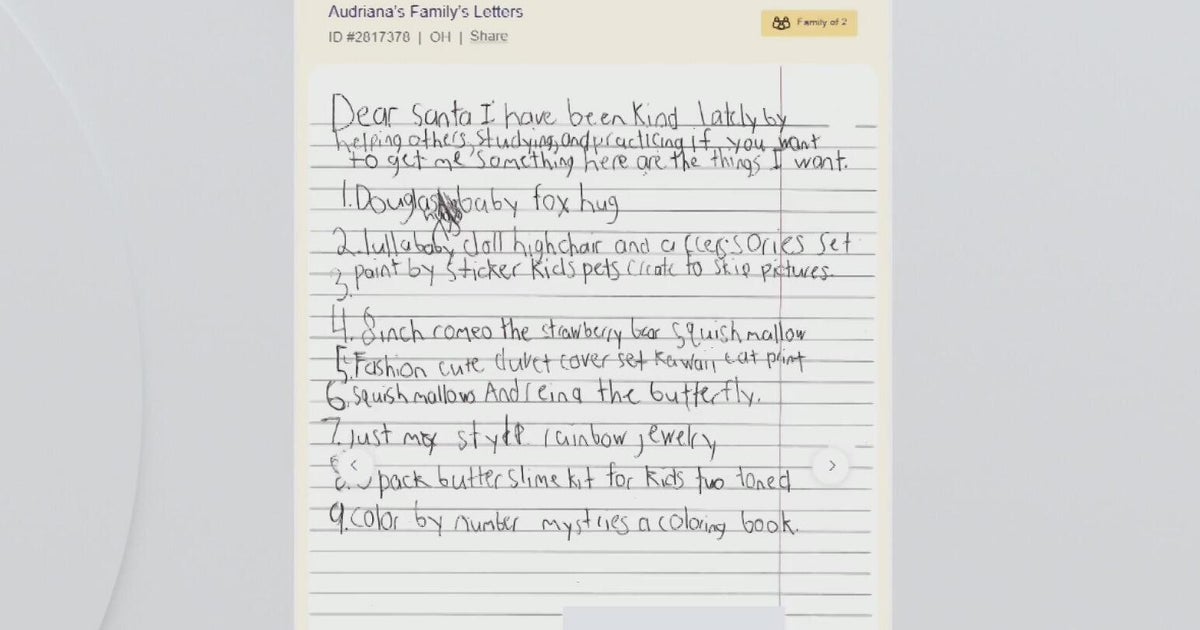 Audriana's Family's Letters
ID #2817378 | OH | Share
Family of 2
Dear Santa I have been Kind lately by
helping others, studying, and practicing if you want
to get me something here are the things I want.
1. Douglas baby fox hug
2. lullababy doll highchair and accessories set
3. paint by sticker kids pets create 10 pictures.
4. 8 inch comeo the strawberry bear squishmallow
5. Fashion cute duvet cover set Kawaii cat print
6. squishmallows the butterfly.
7. Just my style rainbow jewelry
8. pack butter slime kit for kids two toned
9. color by number mystries a coloring book.